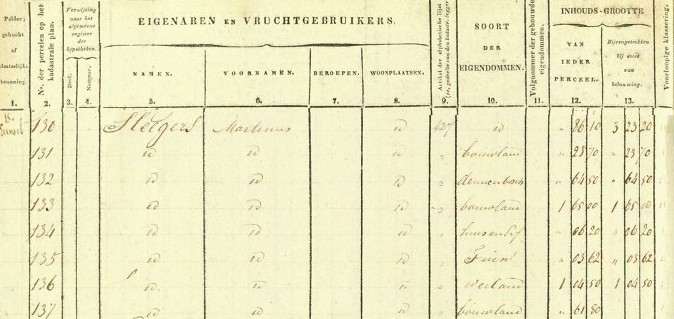 Polder, gehucht of plaatselijke benaming
Nr. der perceelen op het kadastrale plan.
Verwijzing naar het algemeene register der hypotheken.
Deel.
Nummer.
EIGENAREN EN VRUCHTGEBRUIKERS.
NAMEN.
VOORNAMEN.
BEROEPEN.
WOONPLAATSEN.
Artikel der alphabetische lijst
SOORT DER EIGENDOMMEN.
Volgnummer der gebouwde eigendommen.
INHOUDS-GROOTTE
VAN IEDER PERCEEL.
Bijeengetrokken bij soort van bebouwing.
Voorloopige klassering.
1. 2. 3. 4. 5. 6. 7. 8. 9. 10. 11. 12. 13.
130 Sleegers Martinus id 427 id " 86 10 3 23 20
131 id id id " bouwland " 23 70 " 23 70
132 id id id " dennenbosch " 64 50 " 64 50
133 id id id " bouwland 1 65 00 1 65 00
134 id id id " huis en erf " 06 20 " 06 20
135 id id id " Tuin " 03 62 " 03 62
136 id id id " weiland 1 04 50 1 04 50
137 id id id " bouwland " 61 80